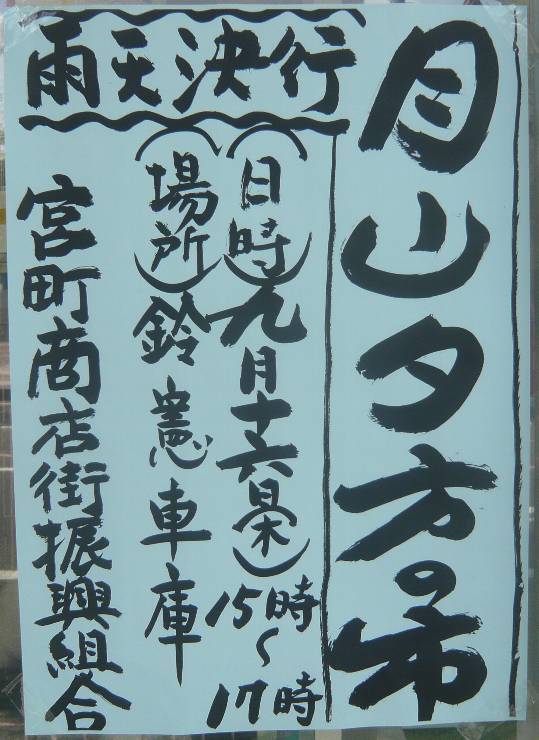 月山夕方の市
雨天決行
(日時)九月十六日(木)15時~17時
(場所)鈴憲車庫
宮町商店街振興組合